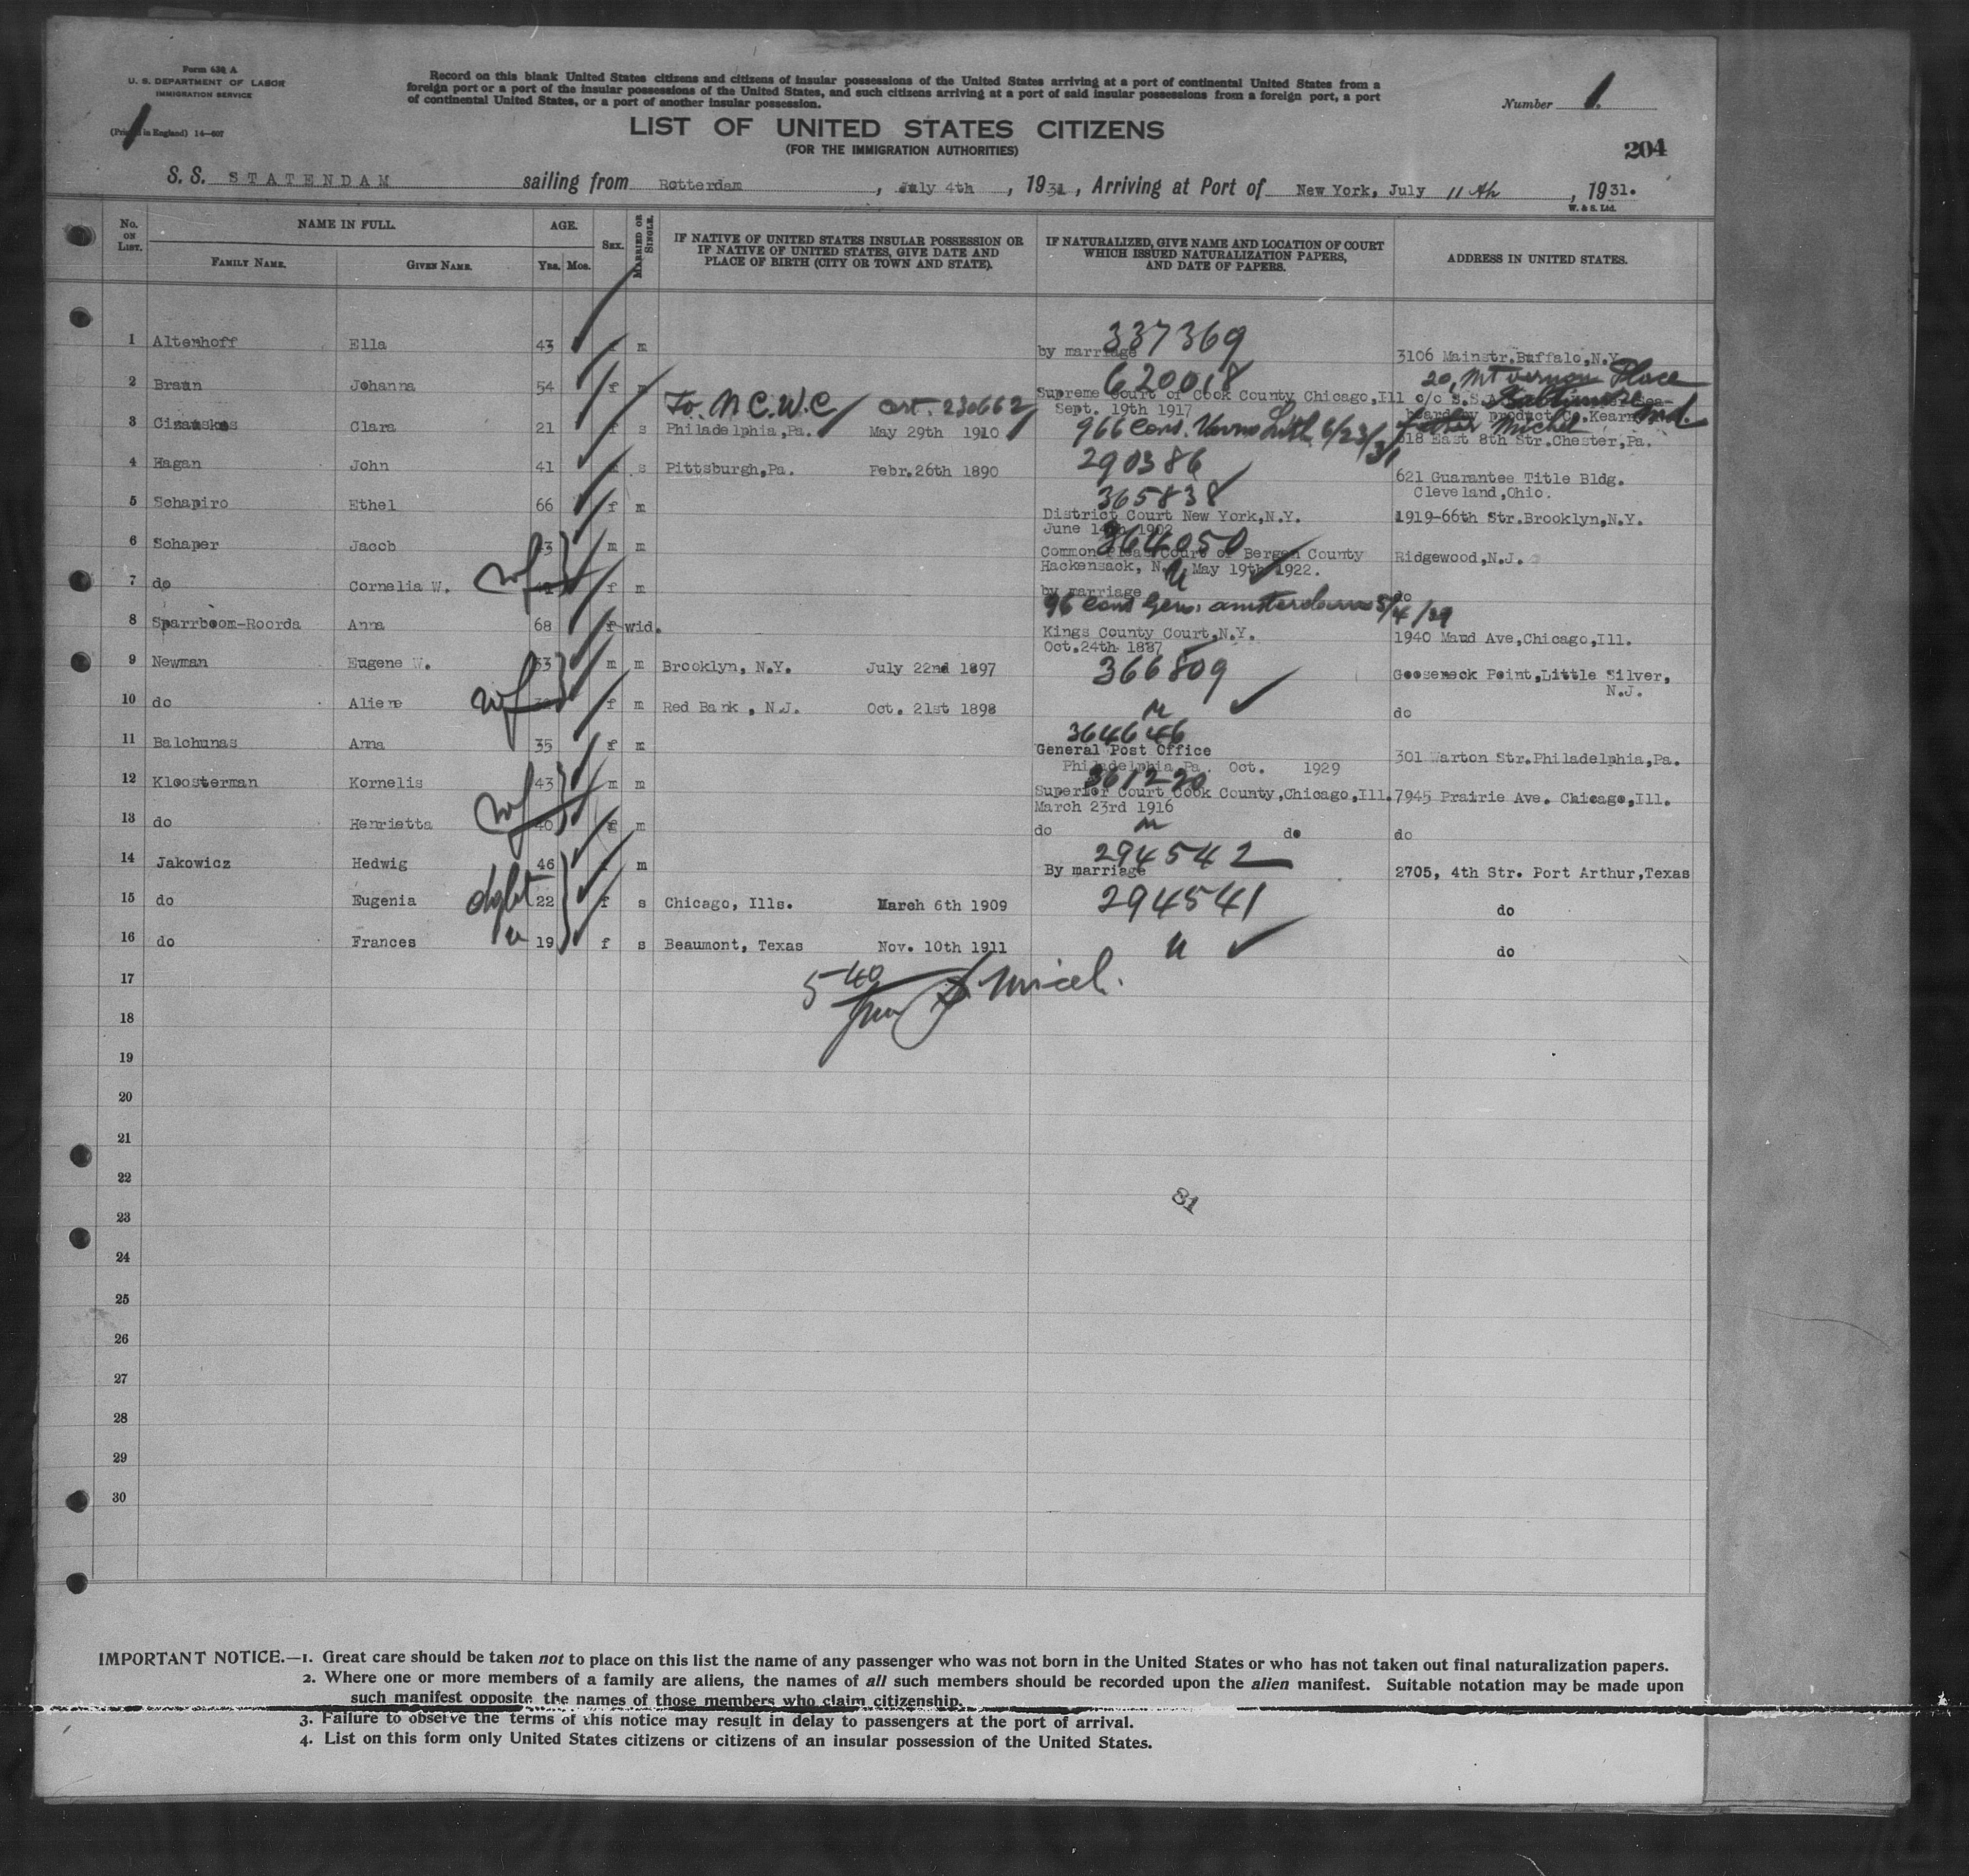 Form 630 A
U. S. DEPARTMENT OF LABOR
IMMIGRATION SERVICE
in England) 14—607
Record on this blank United States citizens and citizens of insular possessions of the United States arriving at a port of continental United States from a
foreign port or a port of the insular possessions of the United States, and such citizens arriving at a port of said insular possessions from a foreign port, a port
of continental United States, or a port of another insular possession.
Number 1.
LIST OF UNITED STATES CITIZENS
(FOR THE IMMIGRATION AUTHORITIES)
204
S. S. STATENDAM sailing from Rotterdam, July 4th, 1931, Arriving at Port of New York, July 11th, 1931.
W. & S. Ltd.
No. ON LIST. NAME IN FULL. FAMILY NAME. GIVEN NAME. AGE. YRS. MOS. SEX. MARRIED OR SINGLE. IF NATIVE OF UNITED STATES INSULAR POSSESSION OR IF NATIVE OF UNITED STATES, GIVE DATE AND PLACE OF BIRTH (CITY OR TOWN AND STATE). IF NATURALIZED, GIVE NAME AND LOCATION OF COURT WHICH ISSUED NATURALIZATION PAPERS, AND DATE OF PAPERS. ADDRESS IN UNITED STATES.
337369
1 Altenhoff Ella 43 f m by marriage 3106 Mainstr.Buffalo,N.Y.
620018 20, Mt Vernon Place
2 Braun Johanna 54 f m Supreme Court of Cook County Chicago,Ill c/o S.S. Baltimore
Sept. 19th 1917 product Co.Kearn Md.
To. N.C.W.C. cert. 230662 966 Cons. Lith 6/23/31 father Michel
3 Clara 21 f s Philadelphia,Pa. May 29th 1910 618 East 8th Str.Chester,Pa.
290386
4 Hagan John 41 s Pittsburgh,Pa. Febr.26th 1890 621 Guarantee Title Bldg.
Cleveland,Ohio.
365838
5 Schapiro Ethel 66 f m District Court New York,N.Y. 1919-66th Str.Brooklyn,N.Y.
June 14th 1902
364050
6 Schaper Jacob 43 m m Common Pleas Court of Bergen County Ridgewood,N.J.
Hackensack, N.J. May 19th 1922.
7 do Cornelia W. wf f m by marriage do
96 Cons Gen. Amsterdam 5/4/29
8 Sparrboom-Roorda Anna 68 f wid. Kings County Court,N.Y. 1940 Maud Ave,Chicago,Ill.
Oct.24th 1887
9 Newman Eugene W. 33 m m Brooklyn, N.Y. July 22nd 1897 366809 Gooseneck Point,Little Silver,
N.J.
10 do Aliene wf 32 f m Red Bank , N.J. Oct. 21st 1898 " do
364646
11 Balchunas Anna 35 f m General Post Office 301 Warton Str.Philadelphia,Pa.
Philadelphia Pa. Oct. 1929
361220
12 Kloosterman Kornelis 43 m m Superior Court Cook County,Chicago,Ill. 7945 Prairie Ave. Chicago,Ill.
March 23rd 1916
13 do Henrietta wf 40 f m do " do do
294542
14 Jakowicz Hedwig 46 f m By marriage 2705, 4th Str. Port Arthur,Texas
15 do Eugenia dght 22 f s Chicago, Ills. March 6th 1909 294541 do
16 do Frances " 19 f s Beaumont, Texas Nov. 10th 1911 " do
17
18
19
20
21
22
23
24
25
26
27
28
29
30
81
IMPORTANT NOTICE.—1. Great care should be taken not to place on this list the name of any passenger who was not born in the United States or who has not taken out final naturalization papers.
2. Where one or more members of a family are aliens, the names of all such members should be recorded upon the alien manifest. Suitable notation may be made upon
such manifest opposite the names of those members who claim citizenship.
3. Failure to observe the terms of this notice may result in delay to passengers at the port of arrival.
4. List on this form only United States citizens or citizens of an insular possession of the United States.